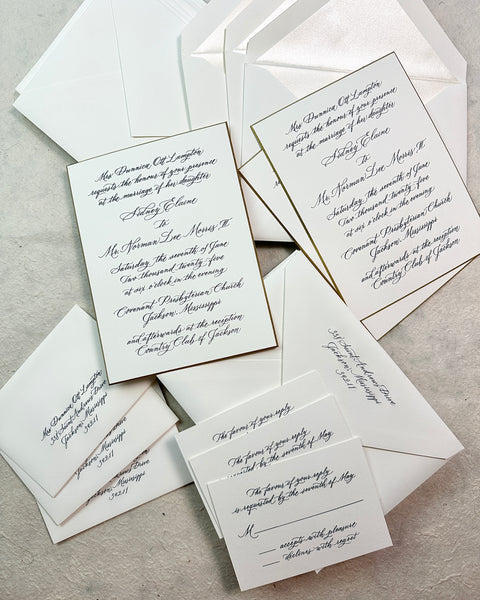 Mrs Dunnica Ott Langton
requests the honour of your presence
at the marriage of her daughter
Sidney Elaine
to
Mr. Norman Lee Morris, III
Saturday, the seventh of June
Two thousand, twenty-five
at six o'clock in the evening
Covenant Presbyterian Church
Jackson, Mississippi
and afterwards at the reception
Country Club of Jackson
Mrs Dunnica Ott Langton
requests the honour of your presence
at the marriage of her daughter
Sidney Elaine
to
Mr. Norman Lee Morris, III
Saturday, the seventh of June
Two thousand, twenty-five
at six o'clock in the evening
Covenant Presbyterian Church
Jackson, Mississippi
and afterwards at the reception
Country Club of Jackson
Saint Andrews Drive
Jackson, Mississippi
39211
Mrs Dunnica Ott Langton
Saint Andrews Drive
Jackson, Mississippi
39211
Jackson, Mississippi
39211
Drive
Jackson, Mississippi
39211
The favour of your reply
The favour of your reply
is requested by the seventh of May
The favour of your reply
is requested by the seventh of May
M
accepts with pleasure
declines with regret